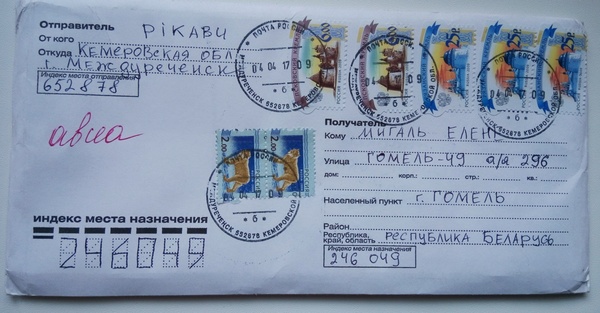 Отправитель РІКАВИ
От кого
Откуда КЕМЕРОВСКАЯ ОБЛ
г. МЕЖДУРЕЧЕНСК
Индекс места отправления
652878
авиа
ПОЧТА РОССИИ
04 04 17 09
МЕЖДУРЕЧЕНСК 652878 КЕМЕРОВСКОЙ ОБЛ.
25Р
25Р
25Р
2.00
Получатель
Кому МИГАЛЬ ЕЛЕНЕ
Улица ГОМЕЛЬ-49 а/я 296
дом: корп.: стр.: кв.:
Населенный пункт г. ГОМЕЛЬ
Район
Республика, край, область РЕСПУБЛИКА БЕЛАРУСЬ
246 049
Индекс места назначения
индекс места назначения
246049